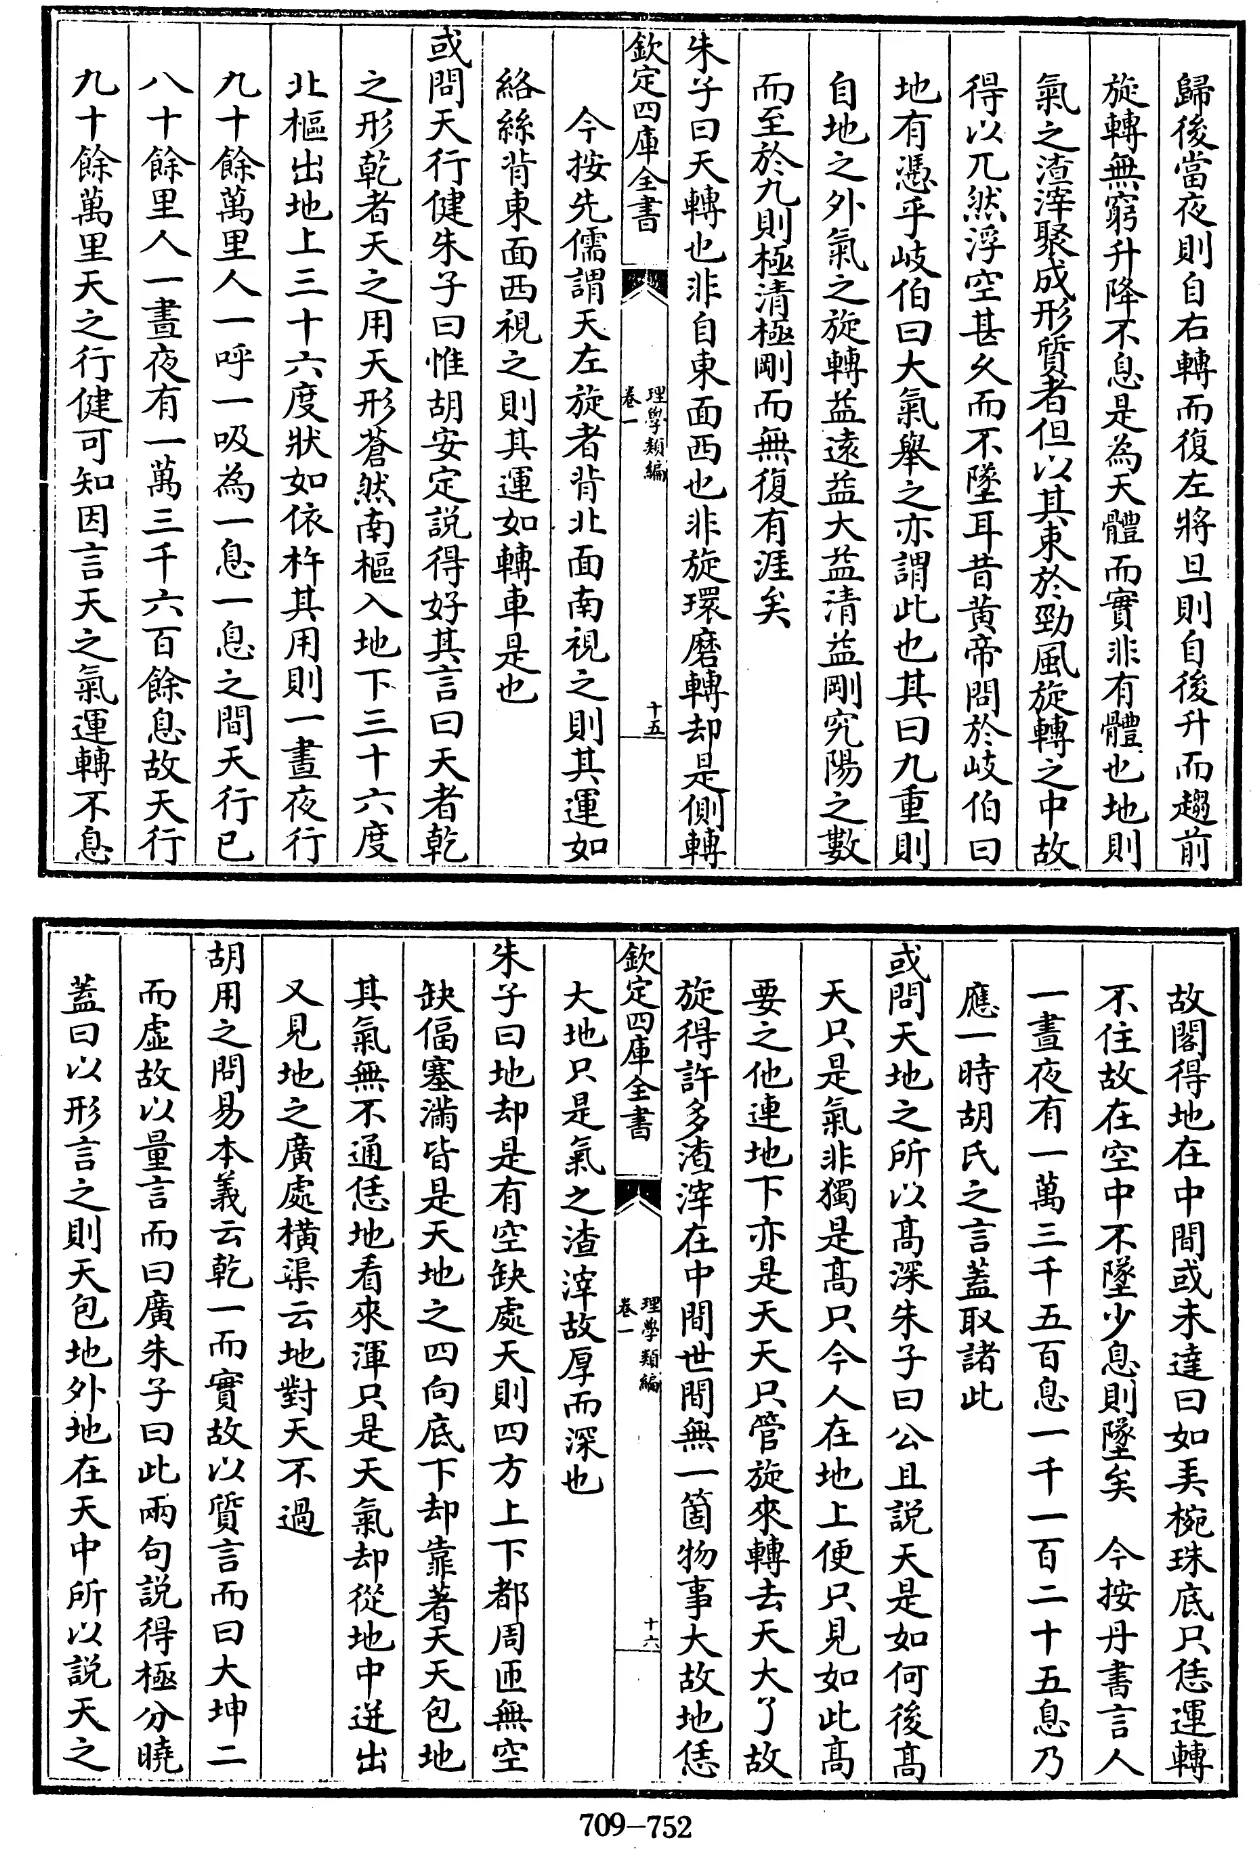 歸後當夜則自右轉而復左將旦則自後升而趨前
旋轉無窮升降不息是為天體而實非有體也地則
氣之渣滓聚成形質者但以其束於勁風旋轉之中故
得以兀然浮空甚久而不墜耳昔黄帝問於岐伯曰
地有憑乎岐伯曰大氣舉之亦謂此也其曰九重則
自地之外氣之旋轉益遠益大益清益剛究陽之數
而至於九則極清極剛而無復有涯矣
朱子曰天轉也非自東而西也非旋環磨轉却是側轉
欽定四庫全書
理學類編
卷一
十五
今按先儒謂天左旋者背北面南視之則其運如
絡絲背東面西視之則其運如轉車是也
或問天行健朱子曰惟胡安定説得好其言曰天者乾
之形乾者天之用天形蒼然南樞入地下三十六度
北樞出地上三十六度狀如依杵其用則一晝夜行
九十餘萬里人一呼一吸為一息一息之間天行已
八十餘里人一晝夜有一萬三千六百餘息故天行
九十餘萬里天之行健可知因言天之氣運轉不息
故閣得地在中間或未達曰如弄椀珠底只恁運轉
不住故在空中不墜少息則墜矣 今按丹書言人
一晝夜有一萬三千五百息一千一百二十五息乃
應一時胡氏之言蓋取諸此
或問天地之所以髙深朱子曰公且説天是如何後髙
天只是氣非獨是髙只今人在地上便只見如此髙
要之他連地下亦是天天只管旋來轉去天大了故
旋得許多渣滓在中間世間無一箇物事大故地恁
欽定四庫全書
理學類編
卷一
十六
大地只是氣之渣滓故厚而深也
朱子曰地却是有空缺處天則四方上下都周匝無空
缺偪塞滿皆是天地之四向底下却靠著天天包地
其氣無不通恁地看來渾只是天氣却從地中迸出
又見地之廣處横渠云地對天不過
胡用之問易本義云乾一而實故以質言而曰大坤二
而虛故以量言而曰廣朱子曰此兩句説得極分曉
蓋曰以形言之則天包地外地在天中所以説天之
709-752